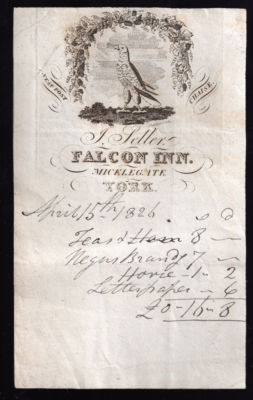 NEAT POST CHAISE.
J. Seller.
FALCON INN.
MICKLEGATE
YORK.
April 15th 1826 s d
Teas & 8 —
Negus Brandy 7 —
1 - 2
Letter paper — 6
£0-16-8